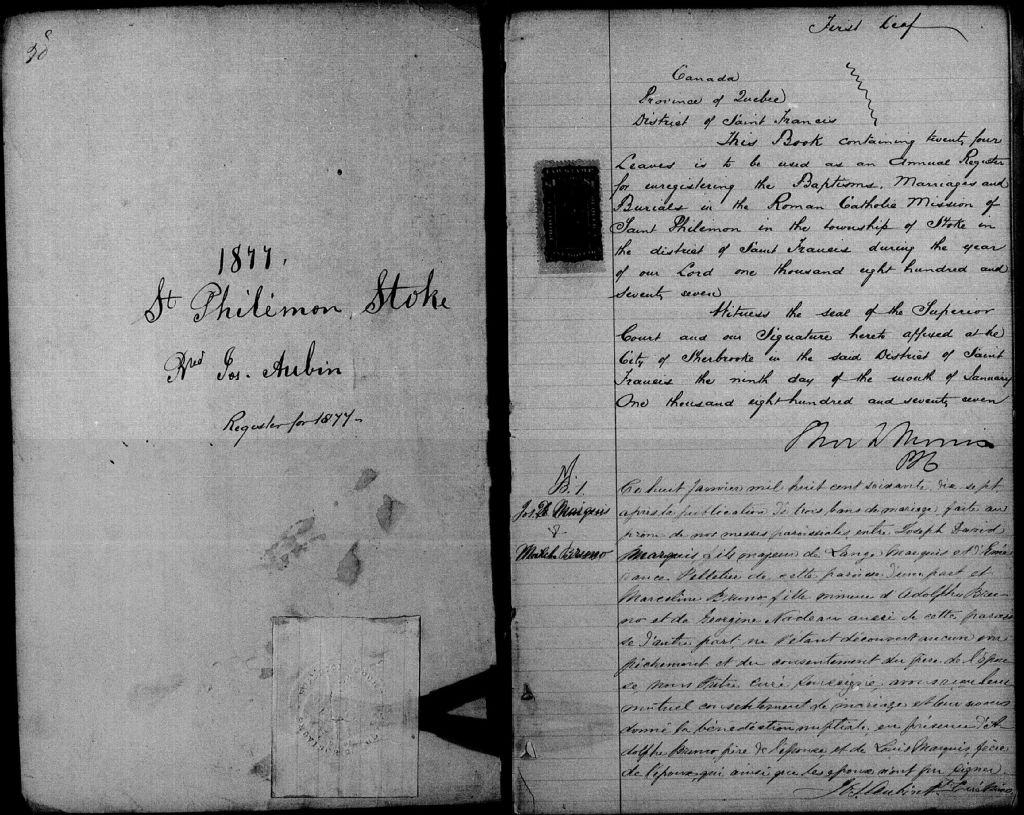 1877.
St Philémon Stoke
Rved Jos. Aubin
Register for 1877
First Leaf
Canada
Province of Quebec
District of Saint Francis
This Book containing twenty four
Leaves is to be used as an Annual Register
for enregistering the Baptisms, Marriages and
Burials in the Roman Catholic Mission of
Saint Philemon in the township of Stoke in
the district of Saint Francis during the year
of our Lord one thousand eight hundred and
seventy seven
Witness the seal of the Superior
Court and our Signature hereto affixed at the
City of Sherbrooke in the said District of Saint
Francis the ninth day of the month of January
One thousand eight hundred and seventy seven
Morris
1
Jos. D. Marquis
&
Bruno
Ce huit Janvier mil huit cent soixante dix sept
après la publication de trois bans de mariage faite au
prône de nos messes paroissiales entre Joseph David
Marquis fils majeur de Lange Marquis et d'Eme
rance Pelletier de cette paroisse d'une part et
Marceline Bruno fille mineure d'Adolphe Bru
no et de Georgine Nadeau aussi de cette parois
se d'autre part ne s'étant découvert aucun em
pêchement et du consentement du père de l'épou
se nous Prêtre curé soussigné, avons reçu leur
mutuel consentement de mariage et leur avons
donné la bénédiction nuptiale, en présence d'A
dolphe Bruno père de l'épouse et de Louis Marquis frère
de l'époux qui ainsi que les époux n'ont pu signer.
Jos. Aubin Ptre Curé